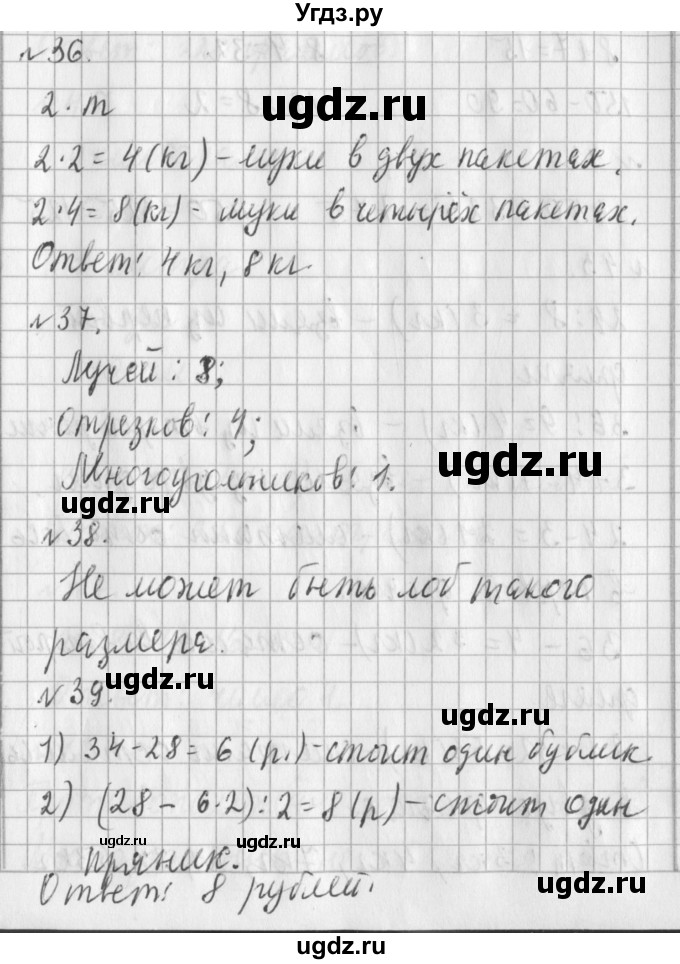 Угдз.ру
№36.
ugdz.ru
2·m
2·2=4(кг)-муки в двух пакетах.
2·4=8(кг)-муки в четырёх пакетах.
Ответ: 4кг, 8кг
№37.
Лучей: 8;
Отрезков: 4;
ugdz.ru
Многоугольников: 1.
ugdz.ru
№38.
Не может быть лоб такого
размера.
ugdz.ru
№39.
ugdz.ru
1) 34-28=6(р.)-стоит один бублик.
2) (28-6·2):2=8(р)-стоит один
ugdz.ru ugdz.ru
пряник.
Ответ: 8 рублей.
ugdz.ru
ugdz.ru